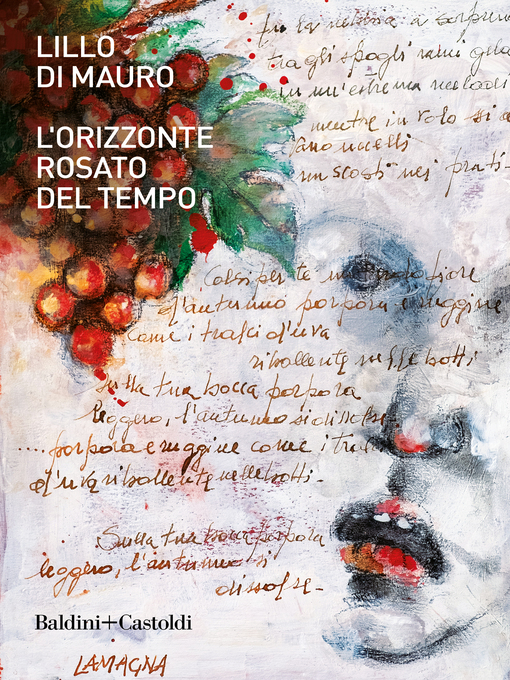 LILLO
DI MAURO
L'ORIZZONTE
ROSATO
DEL TEMPO
fra la nebbia a sorpren
tra gli spogli rami gela
in un'estrema melodi
mentre in volo si a
ano uccelli
nascosti nei prati-
Colsi per te un tardo fiore
d'autunno porpora e ruggine
come i tralci d'uva
ribollente nelle botti
Sulla tua bocca porpora
leggero, l'autunno si dissolse
.... porpora e ruggine come i tral
d'uva ribollente nelle botti-
Sulla tua bocca porpora
leggero, l'autunno si
dissolse-
Baldini+Castoldi
LAMAGNA